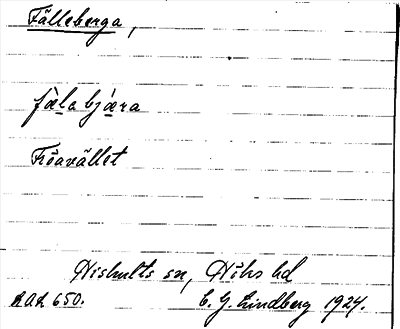 Fälleberga,
fælabjæra
Fröavället
Hishults sn, Höks hd
AOL 650. C. G. Lindberg 1924.